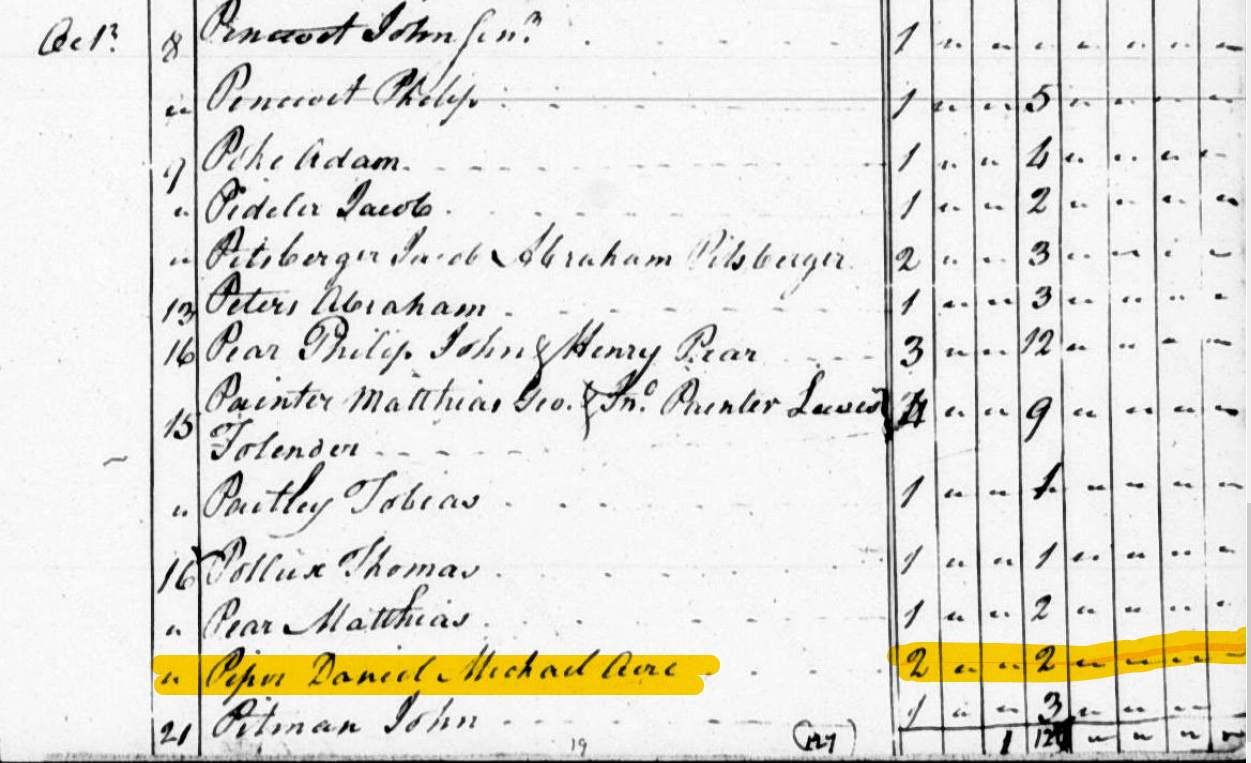 Oct 8 Penewet John Senr. 1 " " " " " " "
" Penewet Philip 1 " " 5 " " " "
9 Pike Adam 1 " " 4 " " " "
" Pideler Jacob 1 " " 2 " " " "
" Pitsberger Jacob Abraham Pitsberger 2 " " 3 " " " "
13 Peters Abraham 1 " " 3 " " " "
16 Pear Philip John & Henry Pear 3 " " 12 " " " "
15 Painter Matthias Geo. & Jno. Painter Lewis 4 " " 9 " " " "
Tolender
" Pautley Tobias 1 " " 1 " " " "
16 Pollux Thomas 1 " " 1 " " " "
" Pear Matthias 1 " " 2 " " " "
" Piper Daniel Michael Acre 2 " " 2 " " " "
21 Pitman John 1 " " 3 " " " "
19 127 1 " " " "